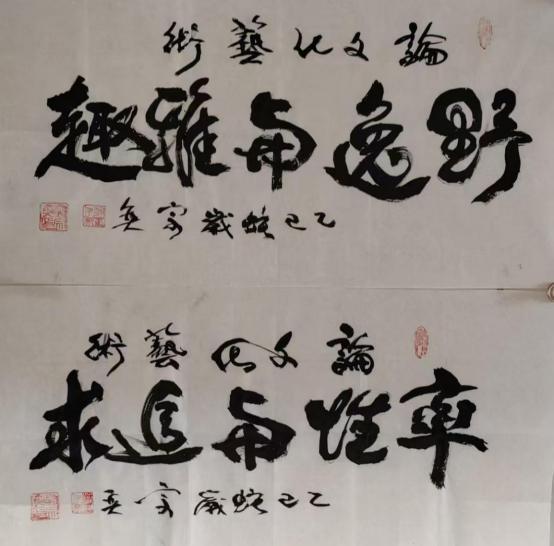 論文化藝術
野逸與雅趣
乙巳蛇歲 宗奐
論文化藝術
率性與追求
乙巳蛇歲 宗奐